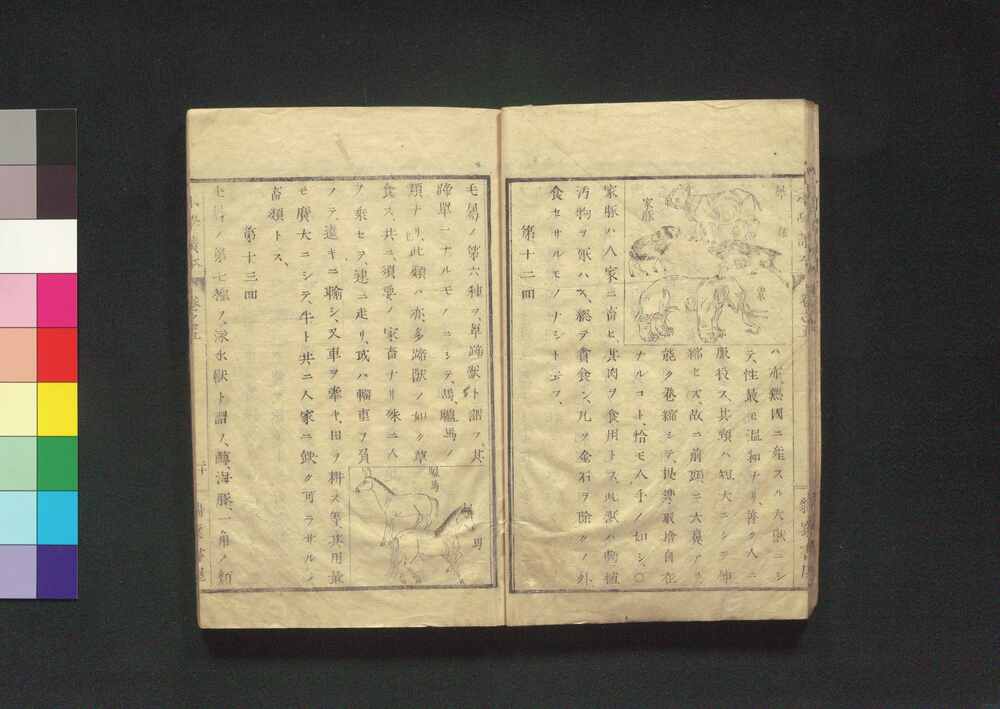 家豚
象
ハ亦、熱國ニ産スル大獸ニシ
テ、性最モ温和ナリ、善ク人ニ
服役ス、其頸ハ短大ニシテ伸
縮セズ、故ニ前頭ニ大鼻アリ
能ク卷縮シテ、提携取捨自在
ナルコト、恰モ人手ノ如シ、〇
家豚ハ人家ニ畜ヒ、其肉ヲ食用トス、此獸ハ動植
汚物ヲ嫌ハス、總テ貪食シ、凡ソ金石ヲ除クノ外
食セサルモノナシト云フ、
第十二囬
毛屬ノ第六種ヲ、單蹄獸ト謂フ、其
蹄單一ナルモノニシテ、馬驢馬ノ
類ナリ、此類ハ亦、多蹄獸ノ如ク草
食ス、共ニ須要ノ家畜ナリ殊ニ人
ヲ乘セテ、速ニ走リ、或ハ輜重ヲ負
ノテ、遠キニ輸シ、又車ヲ牽キ、田ヲ耕ス等、其用最
モ廣大ニシテ、牛ト共ニ人家ニ缺ク可ラサルノ
畜類トス、
驢馬
馬
第十三囬
毛屬ノ第七種ヲ、泳水獸ト謂フ、海豚、一角ノ類